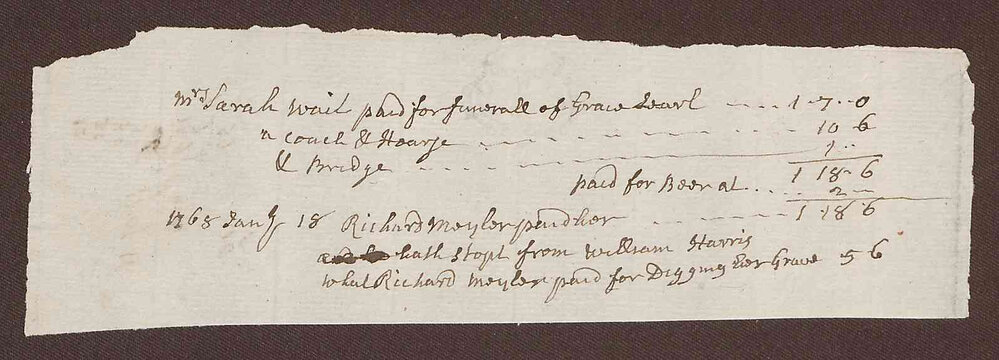 Mrs Sarah Wait paid for funerall of Grace Searl ---- 1 - 7 - 0
a Coach & Hearse ---- 10 6
& Bridge ---- 1 --
1 18 - 6
paid for Beer at .... 2 --
1768 Jany 18 Richard Meyler paid her ---- 1 - 18 - 6
hath Stopt from William Harris
what Richard Meyler paid for Digging her Grave 5 6